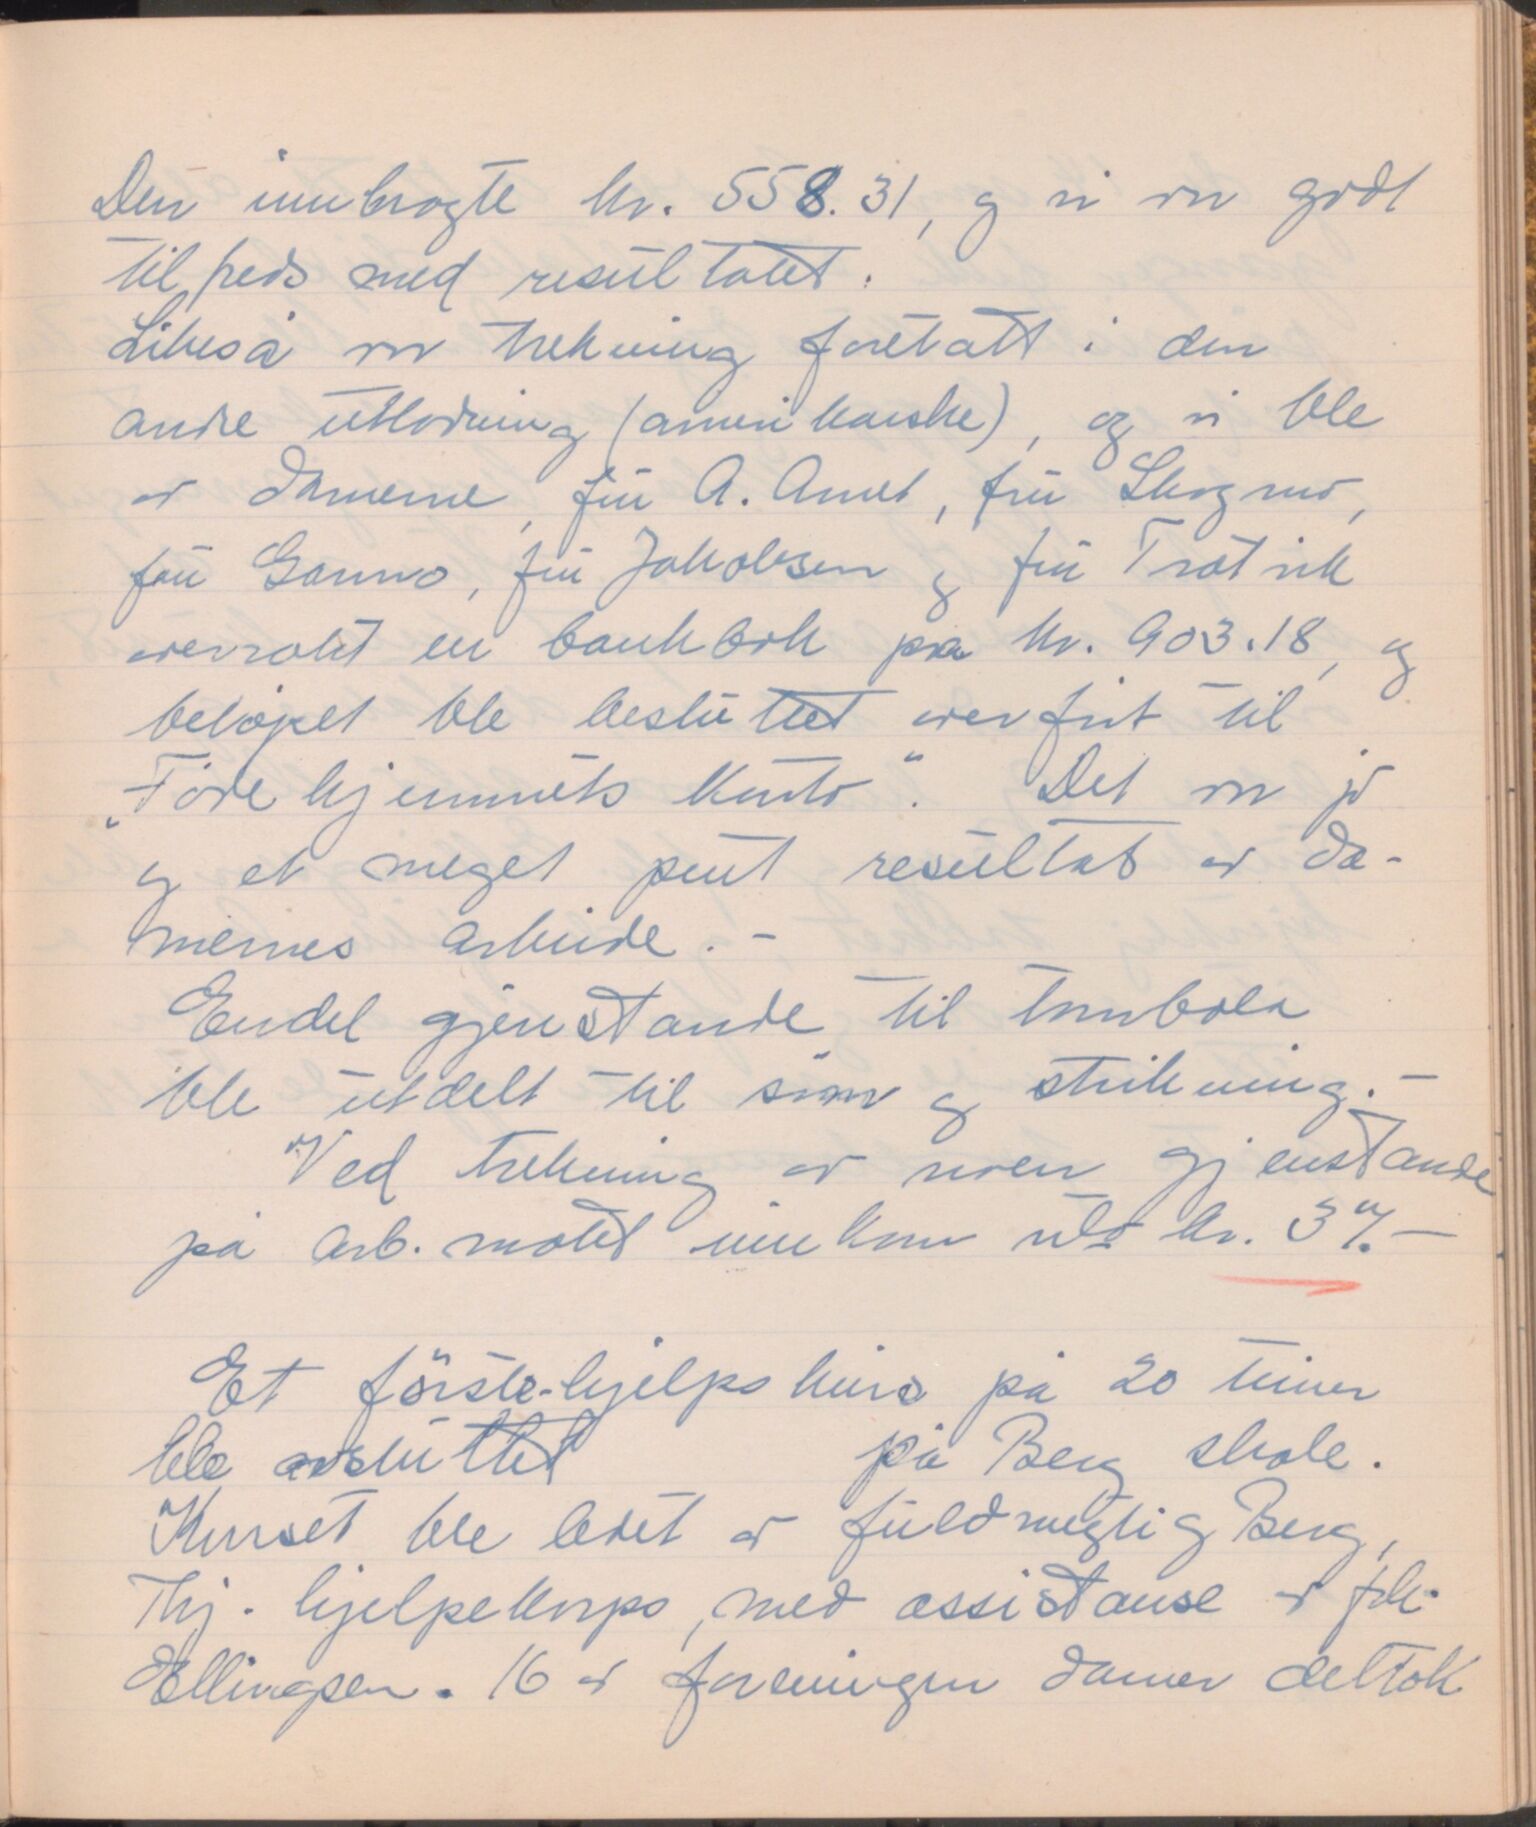 Den innbragte kr. 558.31, og vi var godt
tilfreds med resultatet.
Likeså var trekning foretatt i den
andre utlodning (amerikanske), og vi ble
av damerne, frú A. Amet, frú Skogmo,
frú Sanno, frú Jakobsen og frú Tratvik
overrakt en bankbok på kr. 903.18, og
beløpet ble beslúttet overført til
"Födehjemmets konto". Det var jo
og et meget pent resultat av da-
mernes arbeide. -
Endel gjenstande til tombola
ble utdelt til søm og strikning. -
Ved trekning av noen gjenstande
på arb. møtet innkom úts kr. 37. -
Et förste-hjelps kurs på 20 timer
ble avslúttet på Berg skole.
Kurset ble ledet av fúldmegtig Berg,
Thj. hjelpekorps, med assistanse av frk.
Ellingsen. 16 av foreningen damer deltok